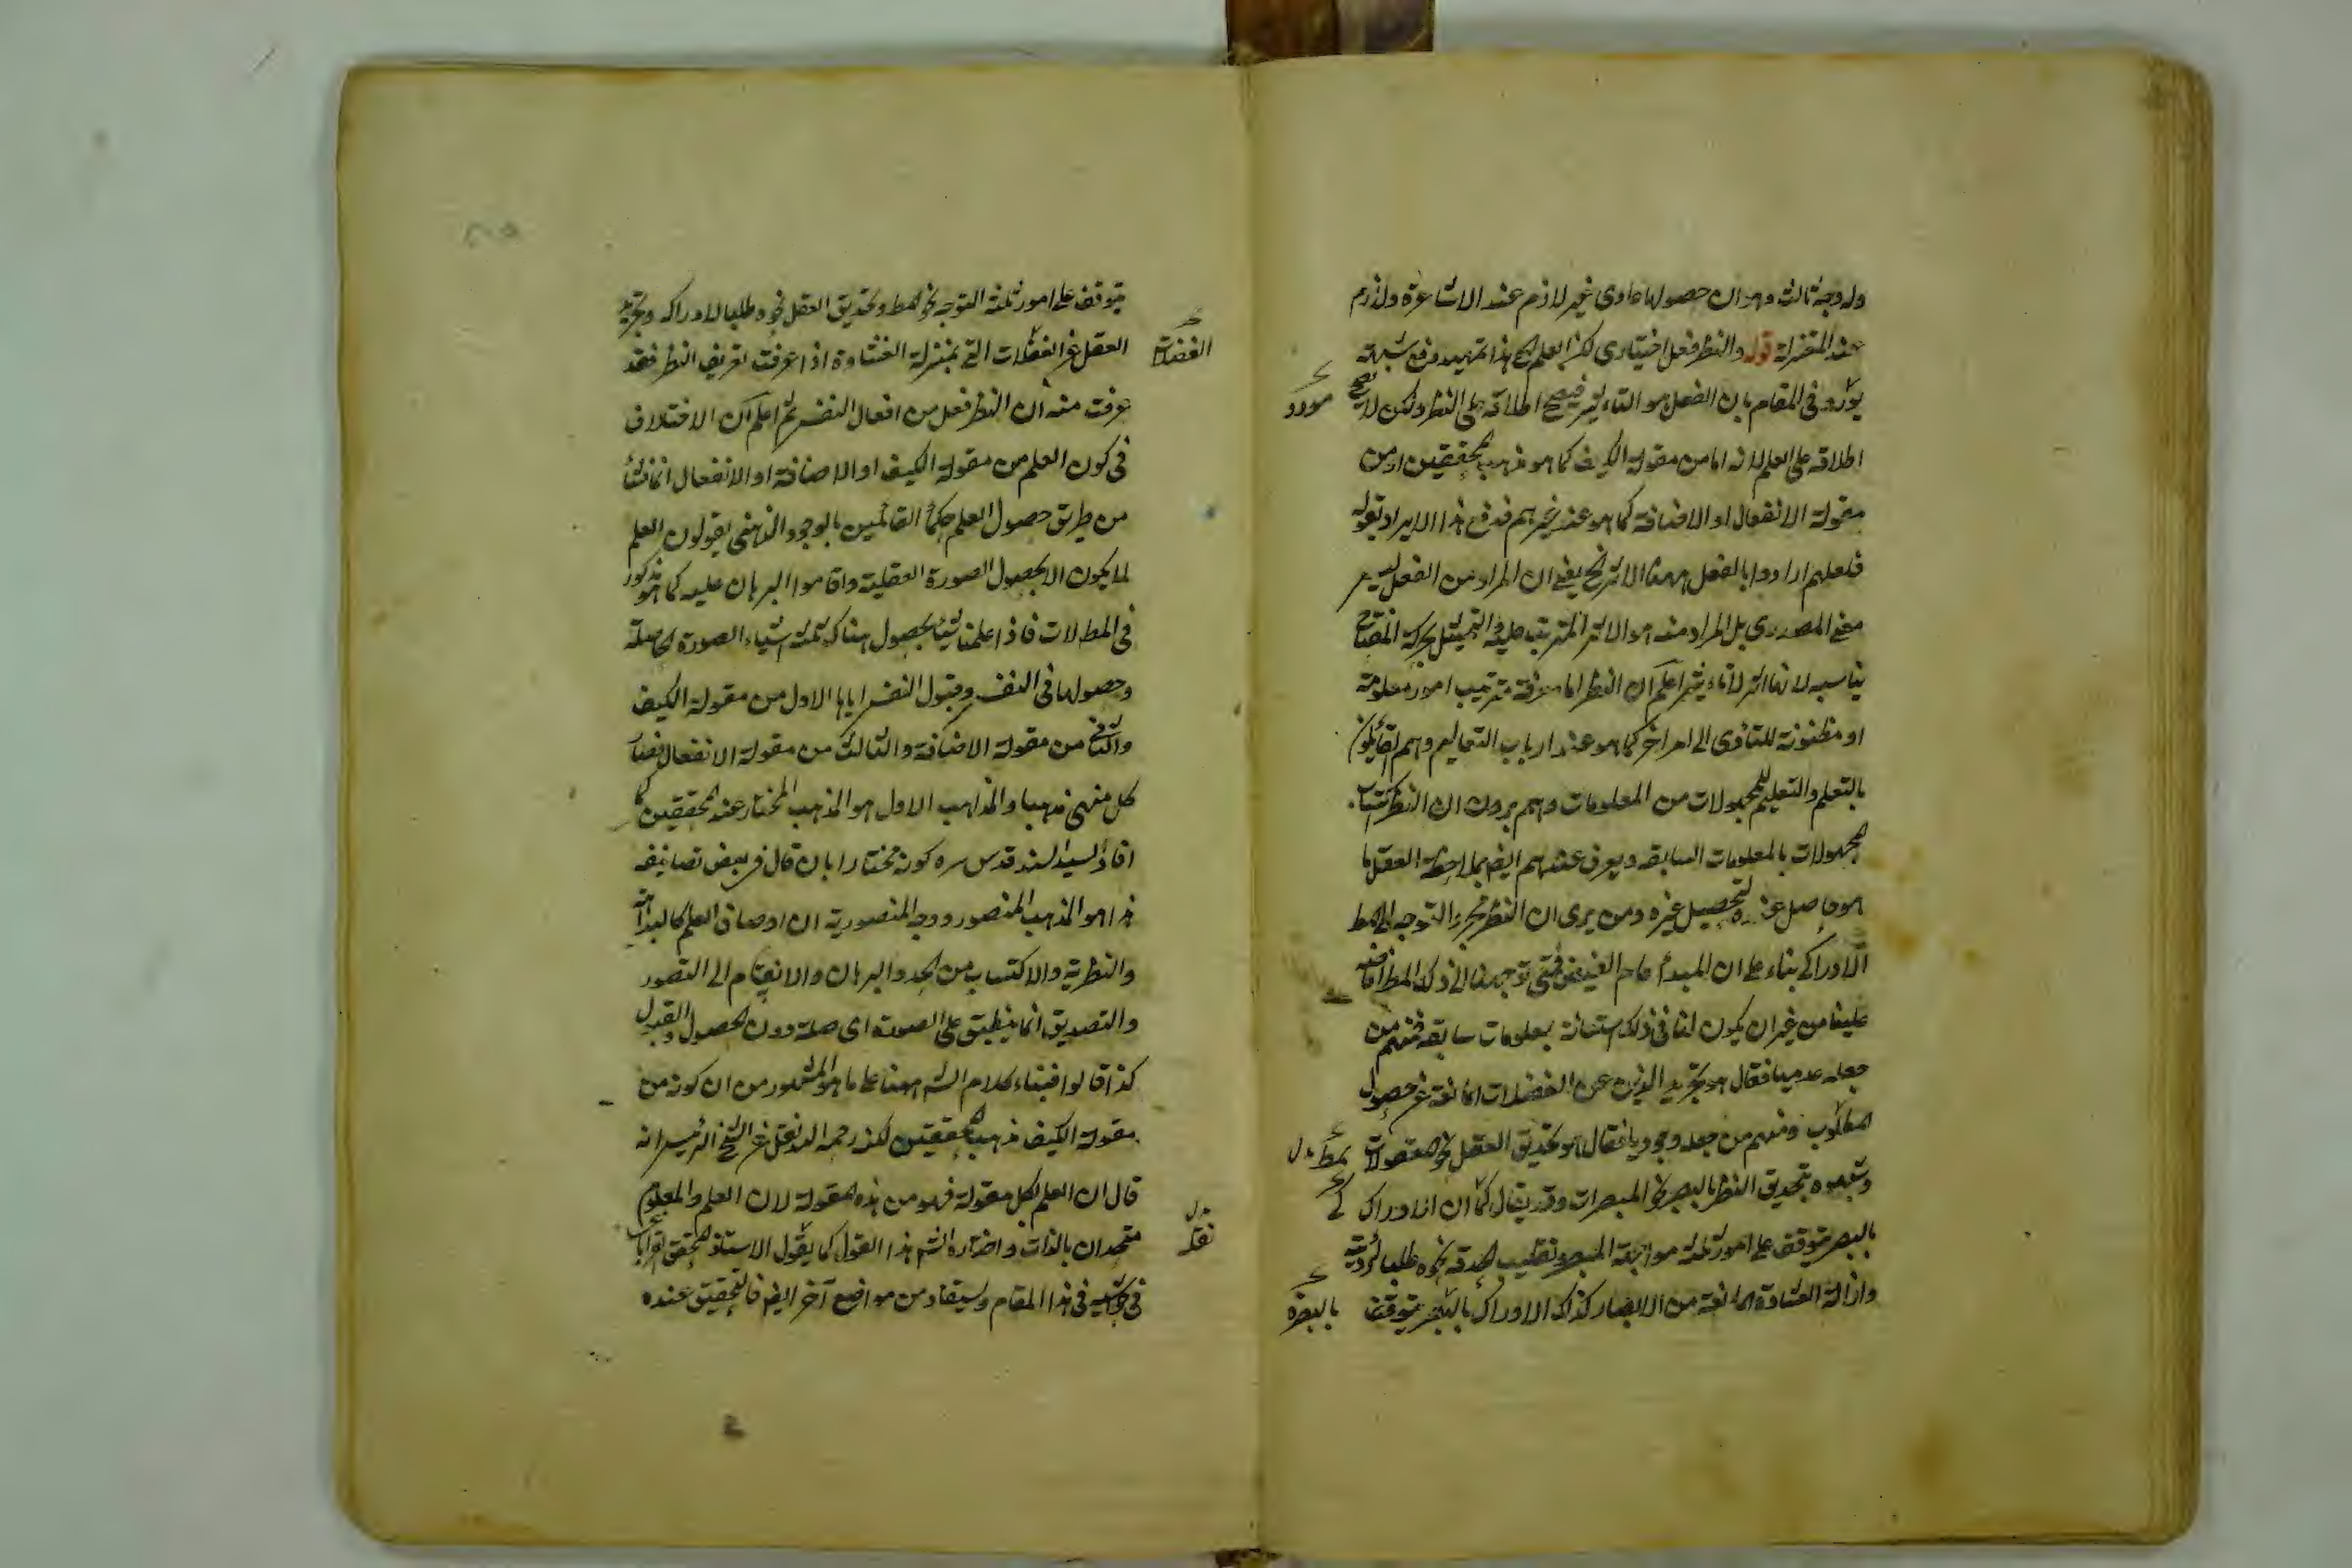 وله وجه ثالث وهو ان حصولها عادى غير لازم عند الاشاعرة ولازم
عند المعتزلة قوله والنظر فعل اختيارى لكن العلم الخ هذا تمهيد دفع شبهة
يورد فى المقام بان الفعل هو التاثير فيصح اطلاقه على النظر ولكن لا يصح
مورد
اطلاقه على العلم لانه اما من مقولة الكيف كما هو مذهب المحققين او من
مقولة الانفعال او الاضافة كما هو عند غيرهم فدفع هذا الايراد بقوله
فلعلهم ارادوا بالفعل ههنا الاثر الخ يعنى ان المراد من الفعل ليس
معنى المصدرى بل المراد منه هو الاثر المترتب عليه والتمثيل بحركة المفتاح
يناسبه لانها اثر لا تاثير ثم اعلم ان النظر اما معرفة بترتيب امور معلومة
او مظنونة للتادى الى امر اخر كما هو عند ارباب التعاليم وهم القائلون
بالتعلم والتعليم للمجهولات من المعلومات وهم يرون ان النظر اكتساب
المجهولات بالمعلومات السابقه ويعرف عندهم ايضا بملاحظة العقل ما
هو حاصل عنده لتحصيل غيره ومن يرى ان النظر مجرد التوجه الى المط
الادراكى بناء على ان المبدأ عام الفيض فمتى توجهنا الى ذلك المط افاضه
علينا من غير ان يكون لنا فى ذلك استعانة بمعلومات سابقه فمنهم من
جعله عدميا فقال هو تجريد الذهن عن الغفلات المانعة عن حصول
المطلوب ومنهم من جعله وجوديا فقال هو تحديق العقل نحو المعقولات
وشبهوه بتحديق النظر بالبصر نحو المبصرات وقد يقال كما ان الادراك
بالبصر يتوقف على امور ثلثة مواجهة المبصر وتقليب الحدقة نحوه طلبا لرؤيته
وازالة الغشاوة المانعة من الابصار كذلك الادراك بالبصيرة يتوقف
بالبصيرة
يتوقف على امور ثلثة التوجه نحو المط وتحديق العقل نحوه طلبا لادراكه وتجريد
العقل عن الغفلات التى بمنزلة الغشاوة اذا عرفت تعريف النظر فقد
الغفلات
عرفت منه ان النظر فعل من افعال النفس ثم اعلم ان الاختلاف
فى كون العلم من مقولة الكيف او الاضافة او الانفعال انما نشأ
من طريق حصول العلم حكماء القائلين بالوجود الذهنى يقولون العلم
لا يكون الا بحصول الصورة العقلية واقاموا البرهان عليه كما هو مذكور
فى المطولات فاذا علمنا شيئا يحصل هناك ثلثة اشياء الصورة الحاصلة
وحصولها فى النفس وقبول النفس اياها الاول من مقولة الكيف
والثانى من مقولة الاضافة والثالث من مقولة الانفعال فصار
كل منها مذهبا والمذاهب الاول هو المذهب المختار عند المحققين كما
افاد السيد السند قدس سره كونه مختارا بان قال فى بعض تصانيفه
هذا هو المذهب المنصور ووجه المنصورية ان اوصاف العلم كالبداهة
والنظرية والاكتساب من الحد والبرهان والانقسام الى التصور
والتصديق انما ينطبق على الصورة الحاصلة دون الحصول والقبول
كذا قالوا فبناء كلام الشه ههنا على ما هو المشهور من ان كونه من
مقولة الكيف مذهب المحققين لكنه رحمه الله نقل عن الشيخ الرئيس انه
قال ان العلم بكل مقولة فهو من هذه المقولة لان العلم والمعلوم
متحدان بالذات واختاره الشه هذا القول كما يقول الاستاذ المحقق
نقله
فى حواشيه فى هذا المقام ويستفاد من مواضع آخر ايضا فالتحقيق عنده